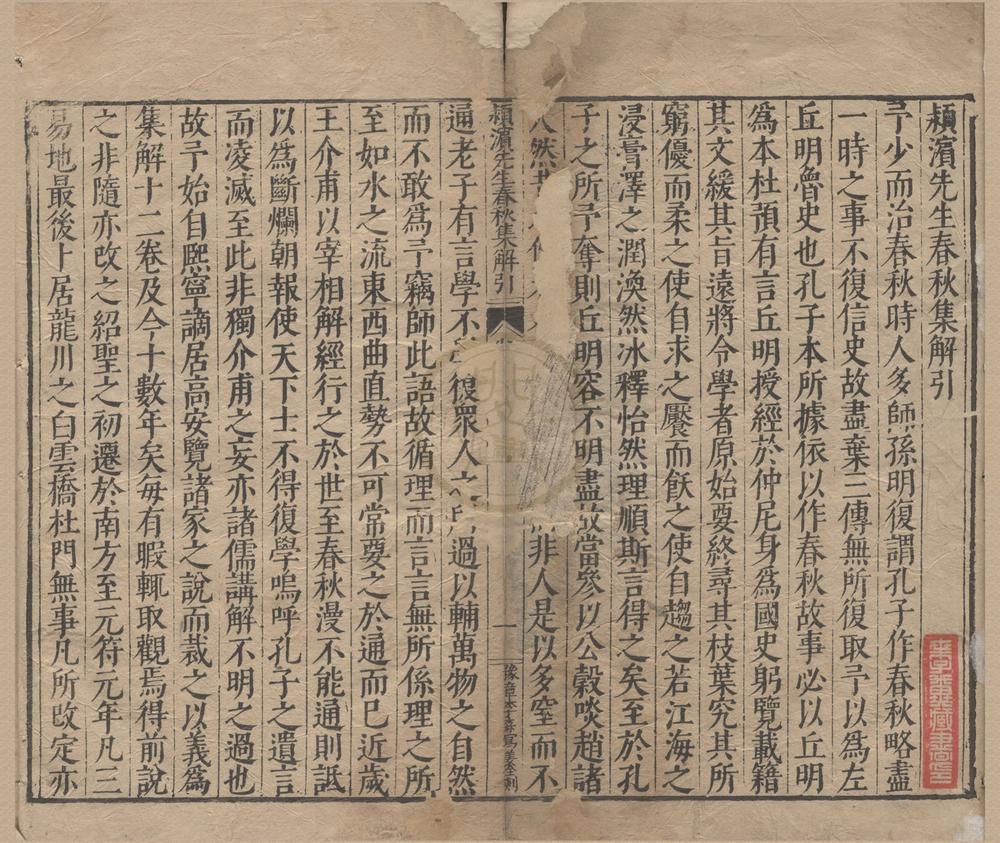 潁濱先生春秋集解引
予少而治春秋時人多師孫明復謂孔子作春秋略盡
一時之事不復信史故盡棄三傳無所復取予以爲左
丘明魯史也孔子本所據依以作春秋故事必以丘明
爲本杜預有言丘明授經於仲尼身爲國史躬覽載籍
其文緩其旨遠將令學者原始要終尋其枝葉究其所
窮優而柔之使自求之饜而飫之使自趨之若江海之
浸膏澤之潤渙然冰釋怡然理順斯言得之矣至於孔
子之所予奪則丘明容不明盡故當參以公穀啖趙諸
人然 非人是以多窒而不
潁濱先生春秋集解引 一 豫章
通老子有言學不 復衆人之 過以輔萬物之自然
而不敢爲予竊師此語故循理而言言無所係理之所
至如水之流東西曲直勢不可常要之於通而已近歲
王介甫以宰相解經行之於世至春秋漫不能通則詆
以爲斷爛朝報使天下士不得復學嗚呼孔子之遺言
而凌滅至此非獨介甫之妄亦諸儒講解不明之過也
故予始自熙寧謫居高安覽諸家之說而裁之以義爲
集解十二卷及今十數年矣每有暇輒取觀焉得前說
之非隨亦改之紹聖之初遷於南方至元符元年凡三
易地最後卜居龍川之白雲橋杜門無事凡所改定亦